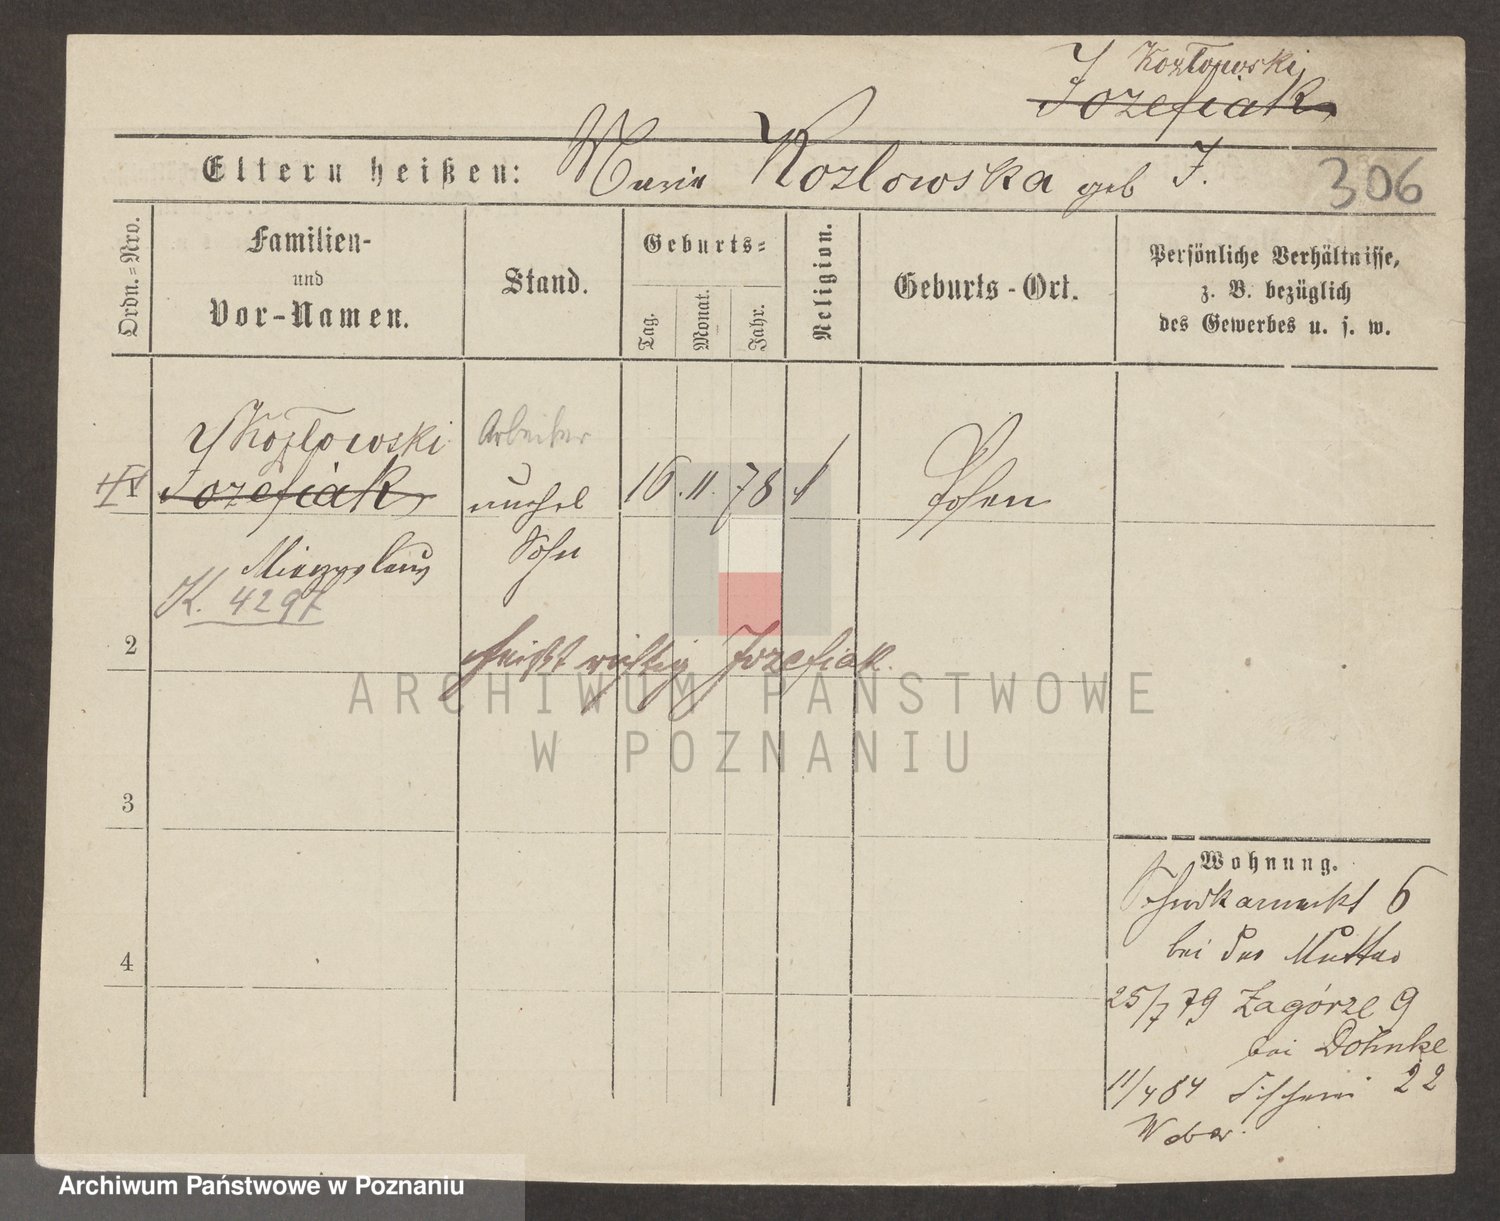 Kozłowski
Jozefiak
Eltern heißen: Maria Kozlowska geb J.
306
Ordn.=Nro.
Familien-
und
Vor-Namen.
Stand.
Geburts=
Tag.
Monat.
Jahr.
Religion.
Geburts-Ort.
Persönliche Verhältnisse,
z. B. bezüglich
des Gewerbes u. s. w.
Kozłowski
Arbeiter
1
Jozefiak
unehel
16. 11. 78
Posen
Sohn
K. 4297
2
heißt richtig Jozefiak.
ARCHIWUM PAŃSTWOWE
W POZNANIU
3
Wohnung.
6
bei der Mutter
4
25/7 79 Zagórze 9
bei Dohnke
11/4 84 Fischerei 22
Weber.
Archiwum Państwowe w Poznaniu